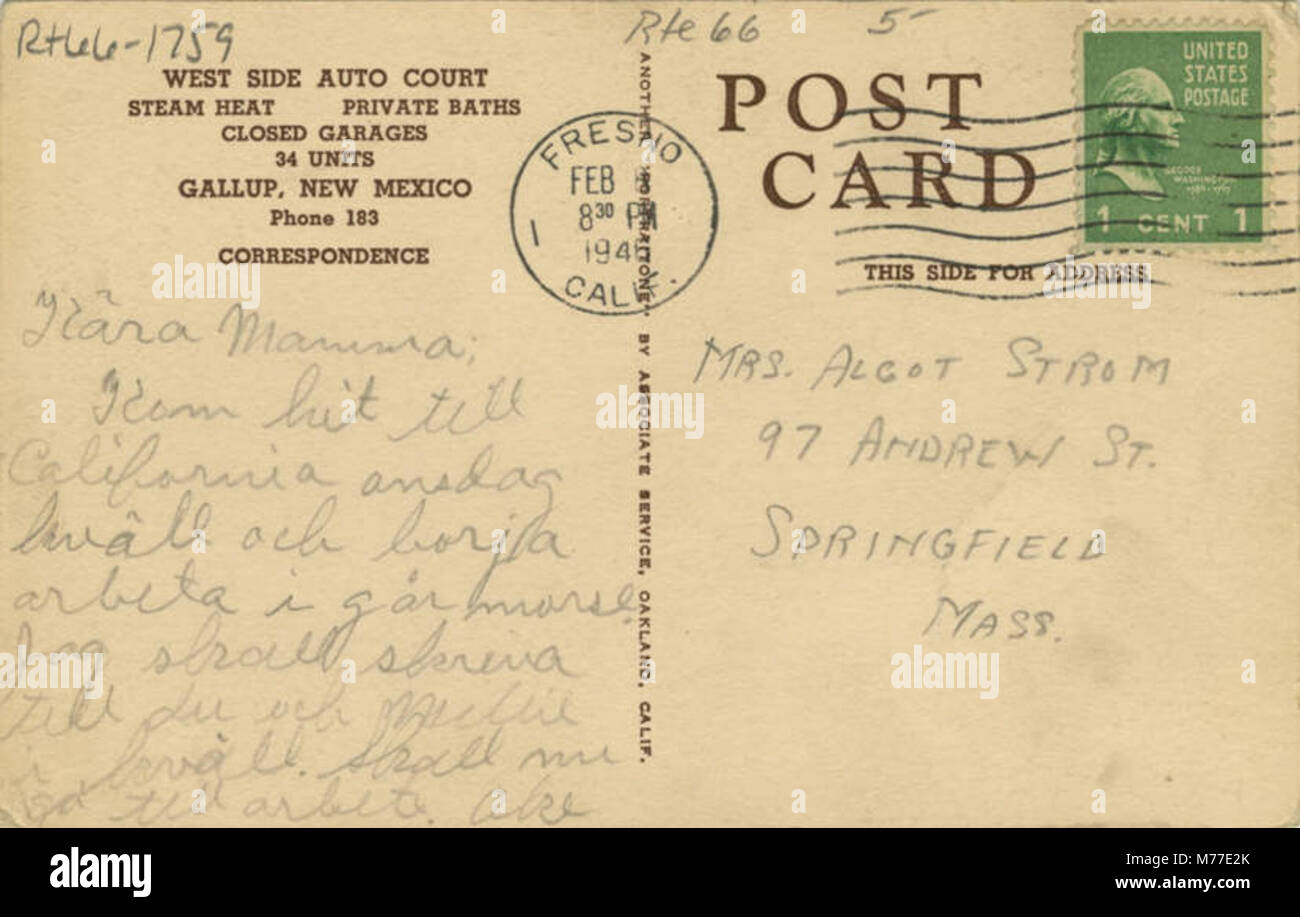 Rt66-1759
Rte 66 5-
WEST SIDE AUTO COURT
STEAM HEAT PRIVATE BATHS
CLOSED GARAGES
34 UNITS
GALLUP, NEW MEXICO
Phone 183
CORRESPONDENCE
Kära Mamma;
Kom hit till
California onsdag
kväll och borja
arbeta i går morse.
Jag skall skreva
till du och
i kväll. Skall nu
gå till arbete. Åke
ANOTHER "PORTRAITONE" BY ASSOCIATE SERVICE, OAKLAND, CALIF.
FRESNO
FEB
8 30 PM
1946
CALIF.
1
POST
CARD
UNITED
STATES
POSTAGE
GEORGE
WASHINGTON
1 CENT 1
THIS SIDE FOR ADDRESS
MRS. ALGOT STROM
97 ANDREW ST.
SPRINGFIELD
MASS.
a
alamy
Image ID: M77E2K
www.alamy.com